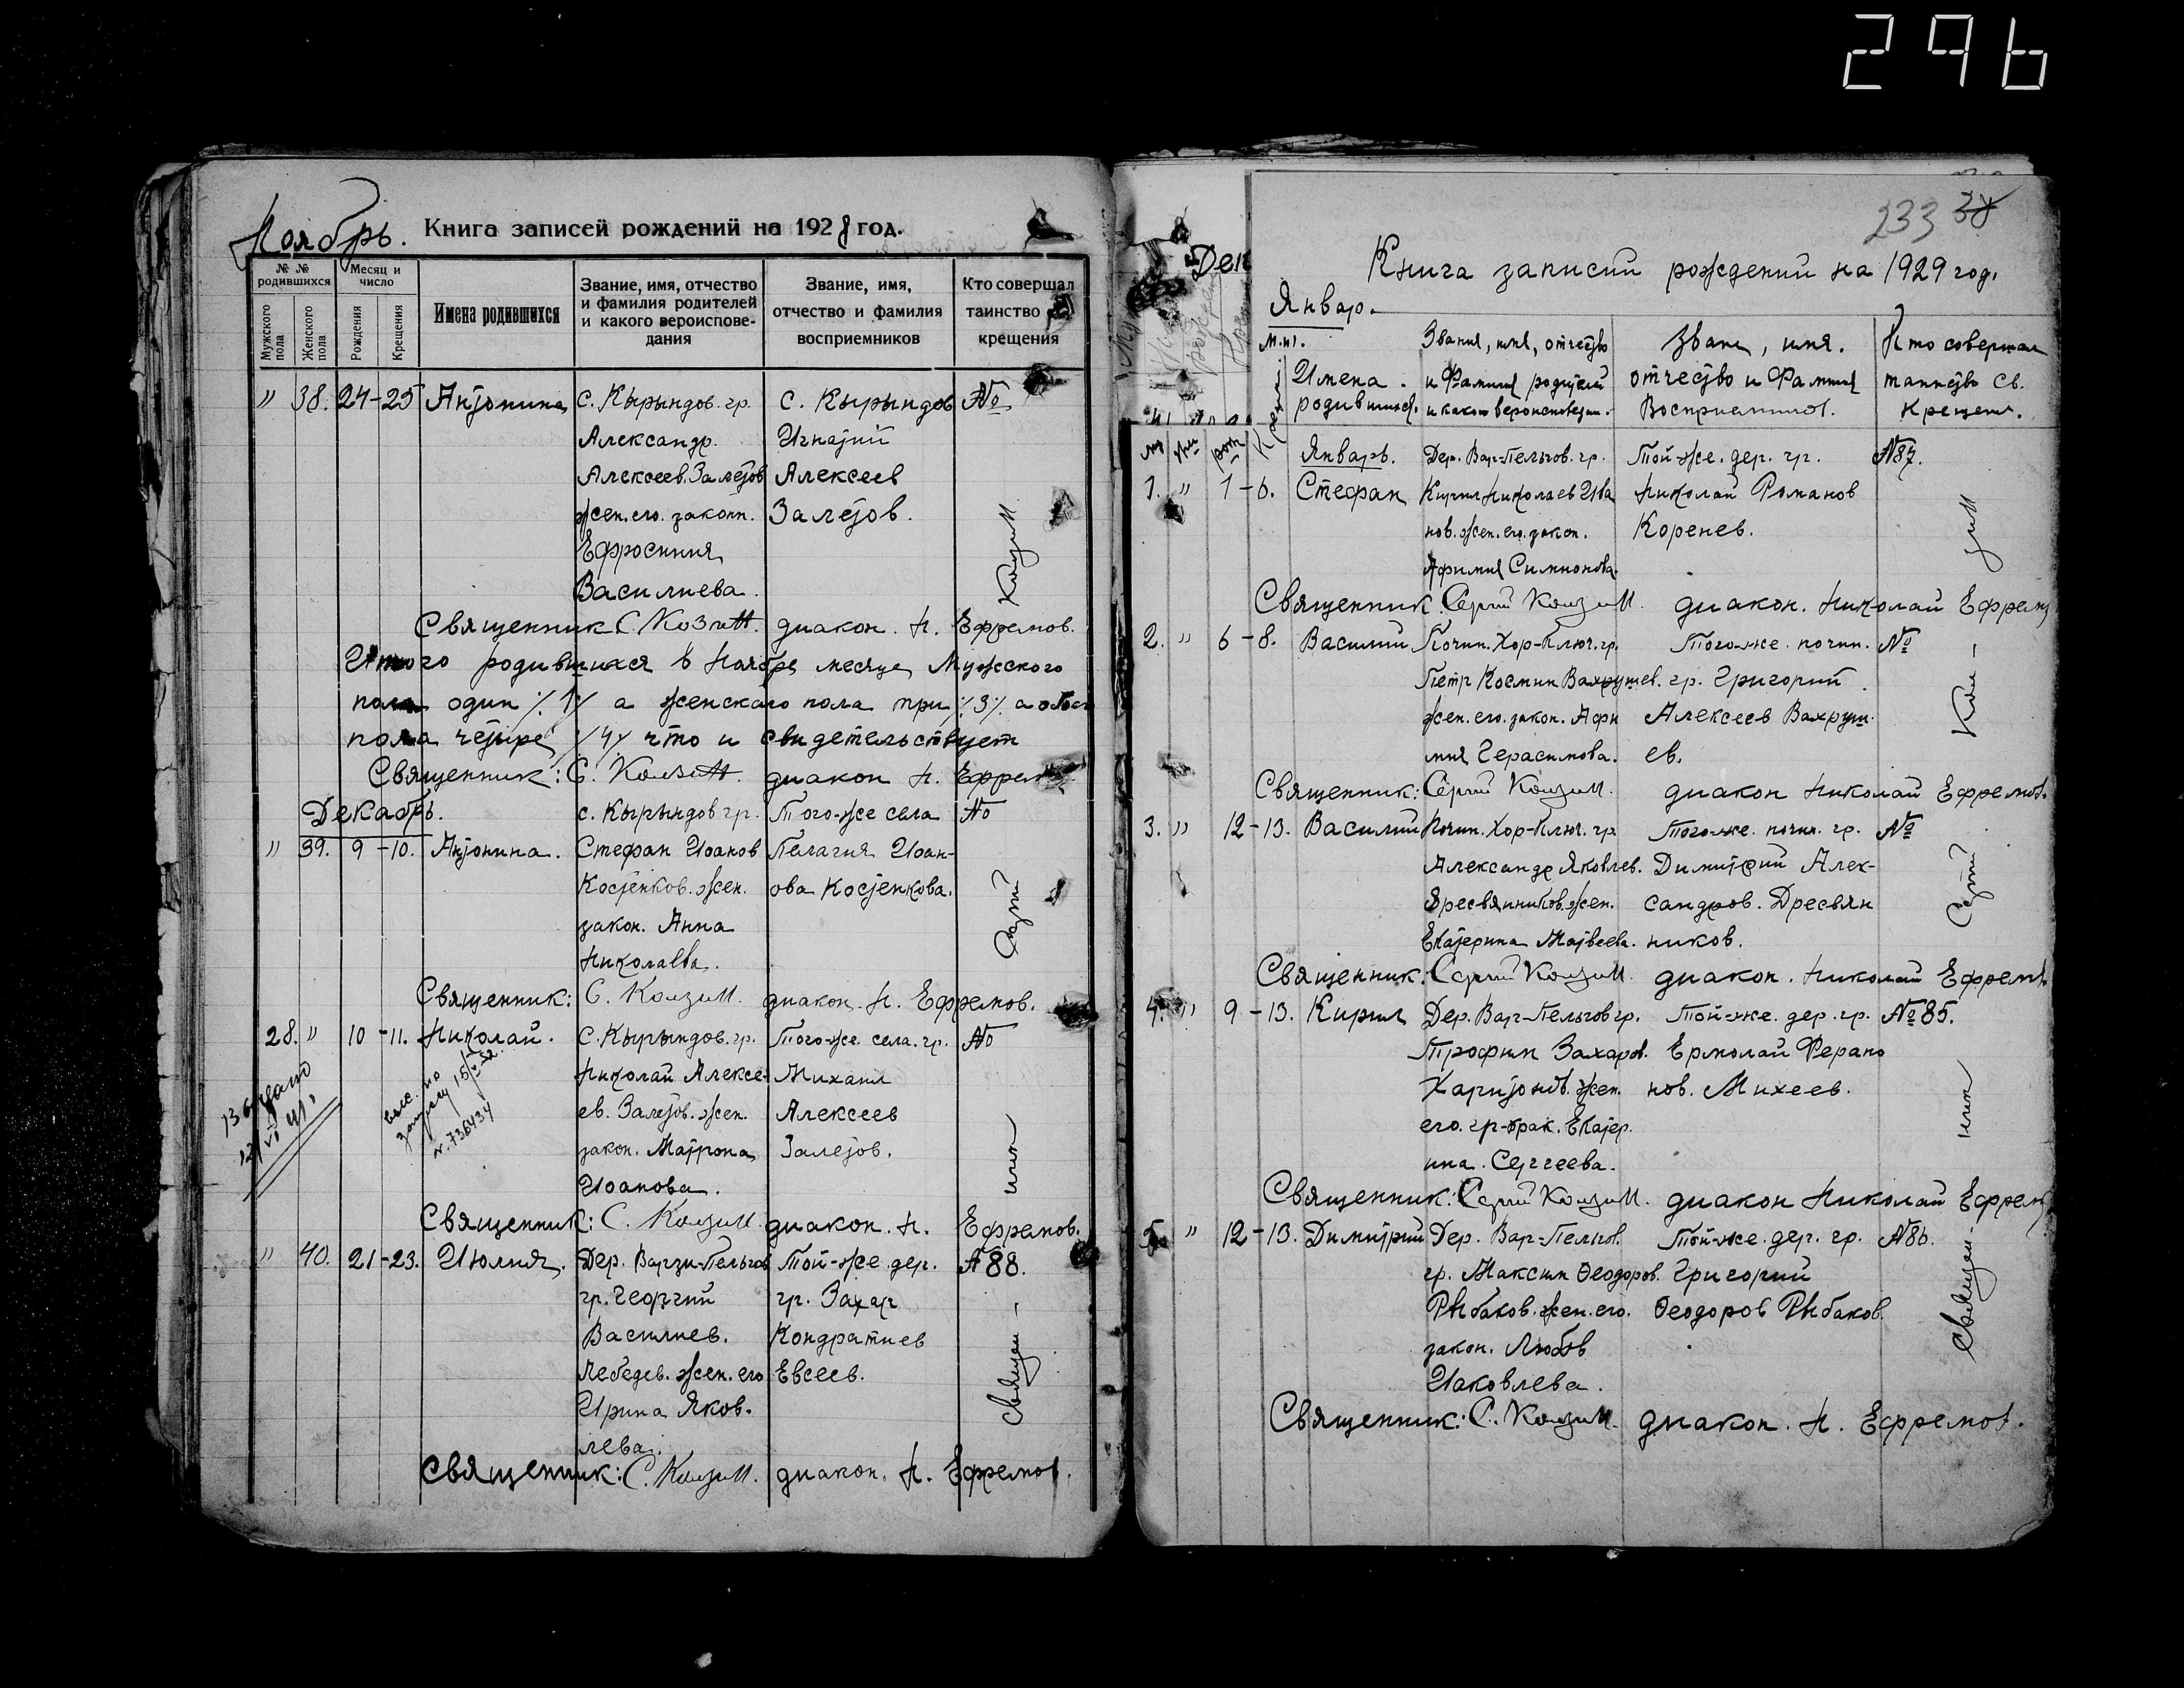 296
Ноябрь. Книга записей рождений на 1928 год.
№ № родившихся
Мужского пола
Женского пола
Месяц и число
Рождения
Крещения
Имена родившихся
Звание, имя, отчество и фамилия родителей и какого вероисповедания
Звание, имя, отчество и фамилия восприемников
Кто совершал таинство крещения
" 38. 24-25 Антонина с. Кырындов. гр. с. Кырындов №
Александр. Игнатий
Алексеев. Залетов Алексеев
жен. его. законн. Залетов.
Ефросиния
Василиева.
Священник С. Козит. диакон. Н. Ефремов.
Итого родившихся в Ноябре месяце Мужского
пола один /.1/. а женского пола три /.3/. а обоего
пола четыре /4/ что и свидетельствует
Священник: С. диакон Н. Ефрем
Декабрь. с. Кырындов гр. Того-же села №
" 39. 9-10. Антонина. Стефан Иоанов Пелагия Иоан-
Костенков. жен. ова Костенкова.
закон. Анна
Николаева.
Священник: С. диакон. Н. Ефремов.
28. " 10-11. Николай. С. Кырындов. гр. Того-же. села. гр. №
Николай Алексе- Михаил
ев. Залетов. жен. Алексеев
закон. Матрона Залетов.
Иоанова.
12/VI 41.
№. 736434
Священник: С. диакон. Н. Ефремов.
" 40. 21-23. Юлия. Дер. Варзи-Пельгов Той-же. дер. № 88.
гр. Георгий гр. Захар
Василиев. Кондратиев
Лебедев. жен. его Евсеев.
Ирина Яков-
лева.
Священник: С. диакон. Н. Ефремов.
Сергий
Священ-
ник
Дек
233 38
Книга записий рождений на 1929 год.
Январ.
Имена родивших.
Звания, имя, отчество и Фамилия родителей и какого вероисповедан.
Зван, имя. отчество и Фамилия Восприемников.
Кто совершал таинство св. крещения.
Январь. Дер. Вар-Пельгов. гр. Той-же. дер. гр. № 87.
1. " 1-6. Стефан Кирил Николаев Ива Николай Романов
нов. жен. его. закон. Коренев.
Афимия Симионова.
Священник: Сергий диакон. Николай Ефрем
2. " 6-8. Василий Почин. Хор-Ключ. гр. Того-же. почин. №
Петр Космин Вахрушев. гр. Григорий
жен. его. закон. Афи Алексеев Вахруш-
мия Герасимова. ев.
Священник: Сергий диакон Николай Ефремов.
3. " 12-13. Василий Почин. Хор-Ключ. гр. Того-же. почин. гр. №
Александр Яковлев. Димитрий Алек-
Дресвянников. жен. сандров. Дресвян
Екатерина Матвеева. ников.
Священник: Сергий диакон. Николай Ефремов
4. " 9-13. Кирил Дер. Вар-Пельгов гр. Той-же. дер. гр. № 85.
Трофим Захаров. Ермолай Ферапо
Харитонов. жен. нов. Михеев.
его. гр-брак. Екатер.
ина. Сергеева.
Священник: Сергий диакон Николай Ефрем
5. " 12-13. Димитрий Дер. Вар-Пельгов. Той-же. дер. гр. № 86.
гр. Максим Феодоров. Григорий
Рыбаков. жен. его. Феодоров Рыбаков.
закон. Любов
Иаковлева.
Священник: С. диакон. Н. Ефремов.
Сергий
Священ-
ник